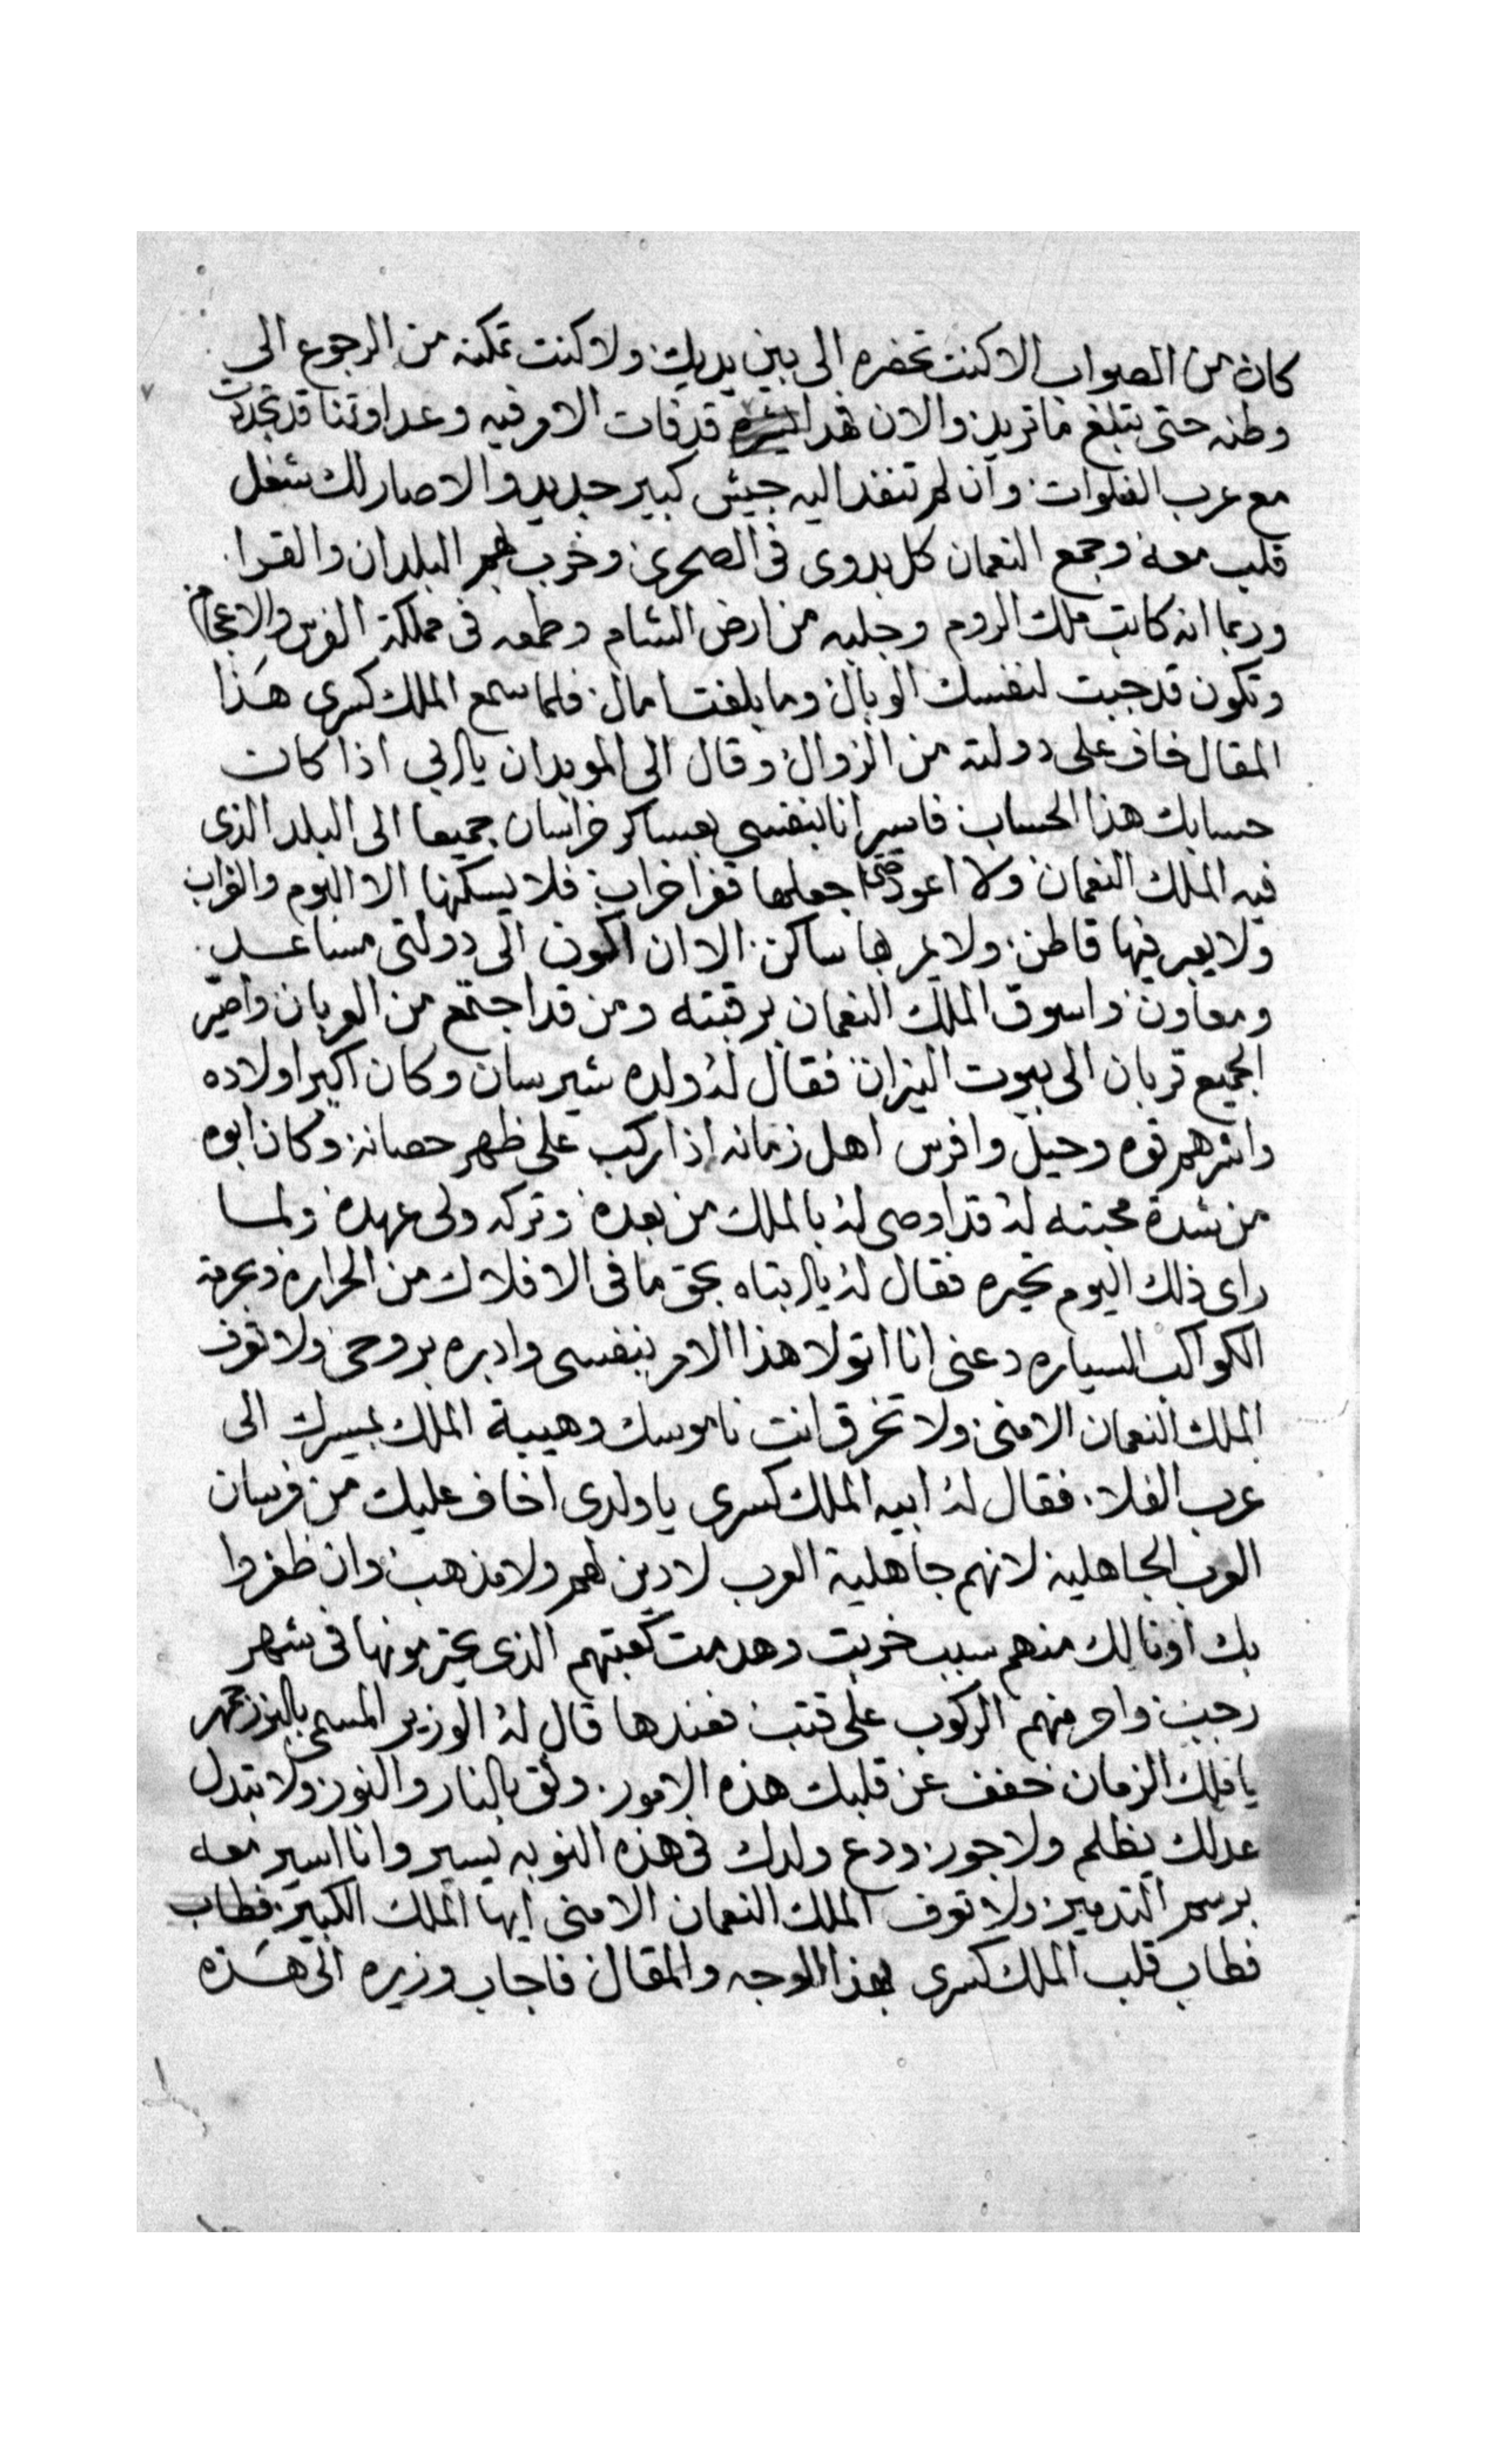 كان من الصواب الا كنت تحضره الى بين يديك ولا كنت تمكنه من الرجوع الى
وطنه حتى تبلغ ما تريد والان فهذا قد فات الامر فيه وعداوتنا قد تجددت
مع عرب الفلوات وان لم تنفد اليه جيش كبير جديد والا صار لك شغل
قلب معه وجمع النعمان كل بدوى فى الصحرى وخرب لهم البلدان والقرا
وربما انه كاتب ملك الروم وجلبه من ارض الشام وطمعه فى مملكة الفرس والاعجام
وتكون قد جبت لنفسك الوبال وما بلغت امال فلما سمع الملك كسرى هذا
المقال خاف على دولته من الزوال وقال الى الموبدان يا ابى اذا كان
حسابك هذا الحساب فاسير انا بنفسى بعساكر خراسان جميعا الى البلد الذى
فيه الملك النعمان ولا اعود حتى اجعلها قفرا خراب فلا يسكنها الا البوم والغراب
ولا يعبر فيها قاطن ولا يمر بها ساكن الا ان اكون الى دولتى مساعد
ومعاون واسوق الملك النعمان برقبته ومن قد اجتمع من العربان واصير
الجميع قربان الى بيوت النيران فقال له ولده شيرسان وكان اكبر اولاده
واشرهم قوه وحيل وافرس اهل زمانه اذا ركب على ظهر حصانه وكان ابوه
من شدة محبته له قد اوصى له بالملك من بعده وتركه ولى عهده ولما
راى ذلك اليوم تحيره فقال له يا ابتاه بحق ما فى الافلاك من الحراره وبحرمة
الكواكب السياره دعنى انا اتولا هذا الامر بنفسى وادبره بروحى ولا تعرف
الملك النعمان الا منى ولا تخرق انت ناموسك وهيبة الملك بمسيرك الى
عرب الفلا فقال له ابيه الملك كسرى يا ولدى اخاف عليك من فرسان
العرب الجاهلية لانهم جاهلية العرب لا دين لهم ولا مذهب وان ظفروا
بك او نالك منهم سبب خربت وهدمت كعبتهم الذى يحترمونها فى شهر
رجب وامنهم الركوب على قتب فعندها قال له الوزير المسمى بالبزرجمهر
يا ملك الزمان خفف عن قلبك هذه الامور وثق بالنار والنور ولا تبدل
عدلك بظلم ولا جور ودع ولدك فى هذه النوبه يسير وانا اسير معه
برسم التدمير ولا تعرف الملك النعمان الا منى ايها الملك الكبير فطاب
فطاب قلب الملك كسرى بهذا الوجه والمقال فاجاب وزيره الى هذه